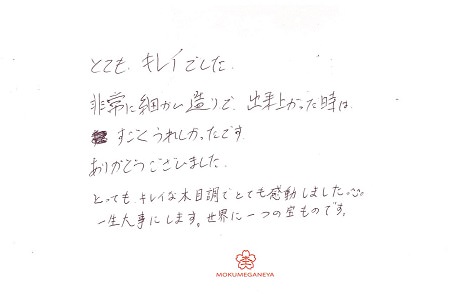 とても、キレイでした。
非常に細かい造りで、出来上がった時は
すごくうれしかったです。
ありがとうございました。
とっても、キレイな木目調でとても感動しました。
一生大事にします。世界に一つの宝ものです。
MOKUMEGANEYA